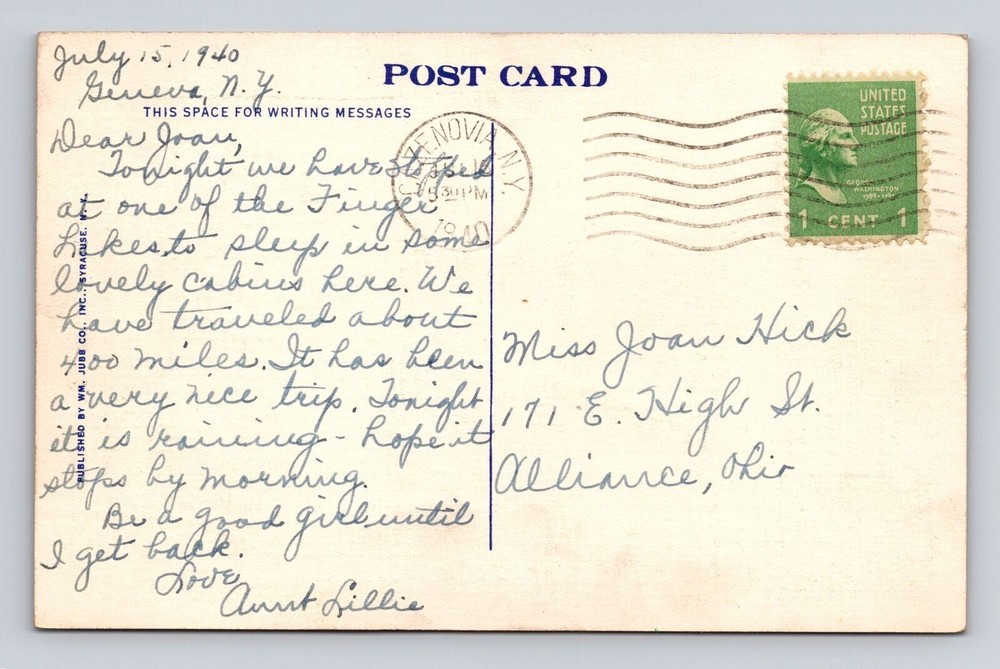 July 15, 1940
Geneva, N.Y.
POST CARD
THIS SPACE FOR WRITING MESSAGES
Dear Joan,
Tonight we have stoped
at one of the Finger
Lakes to sleep in some
lovely cabins here. We
have traveled about
400 miles. It has been
a very nice trip. Tonight
it is raining - hope it
stops by morning.
Be a good girl until
I get back.
Love
Aunt Lillie
PUBLISHED BY WM. JUBB CO., INC., SYRACUSE, N. Y.
CAZENOVIA, N.Y.
530PM
1940
UNITED
STATES
POSTAGE
GEORGE
WASHINGTON
1789-1797
1 CENT 1
Miss Joan Hick
171 E. High St.
Alliance, Ohio